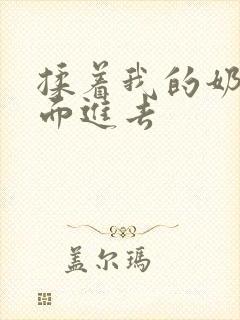 揉着我的奶
而进去
盖尔玛